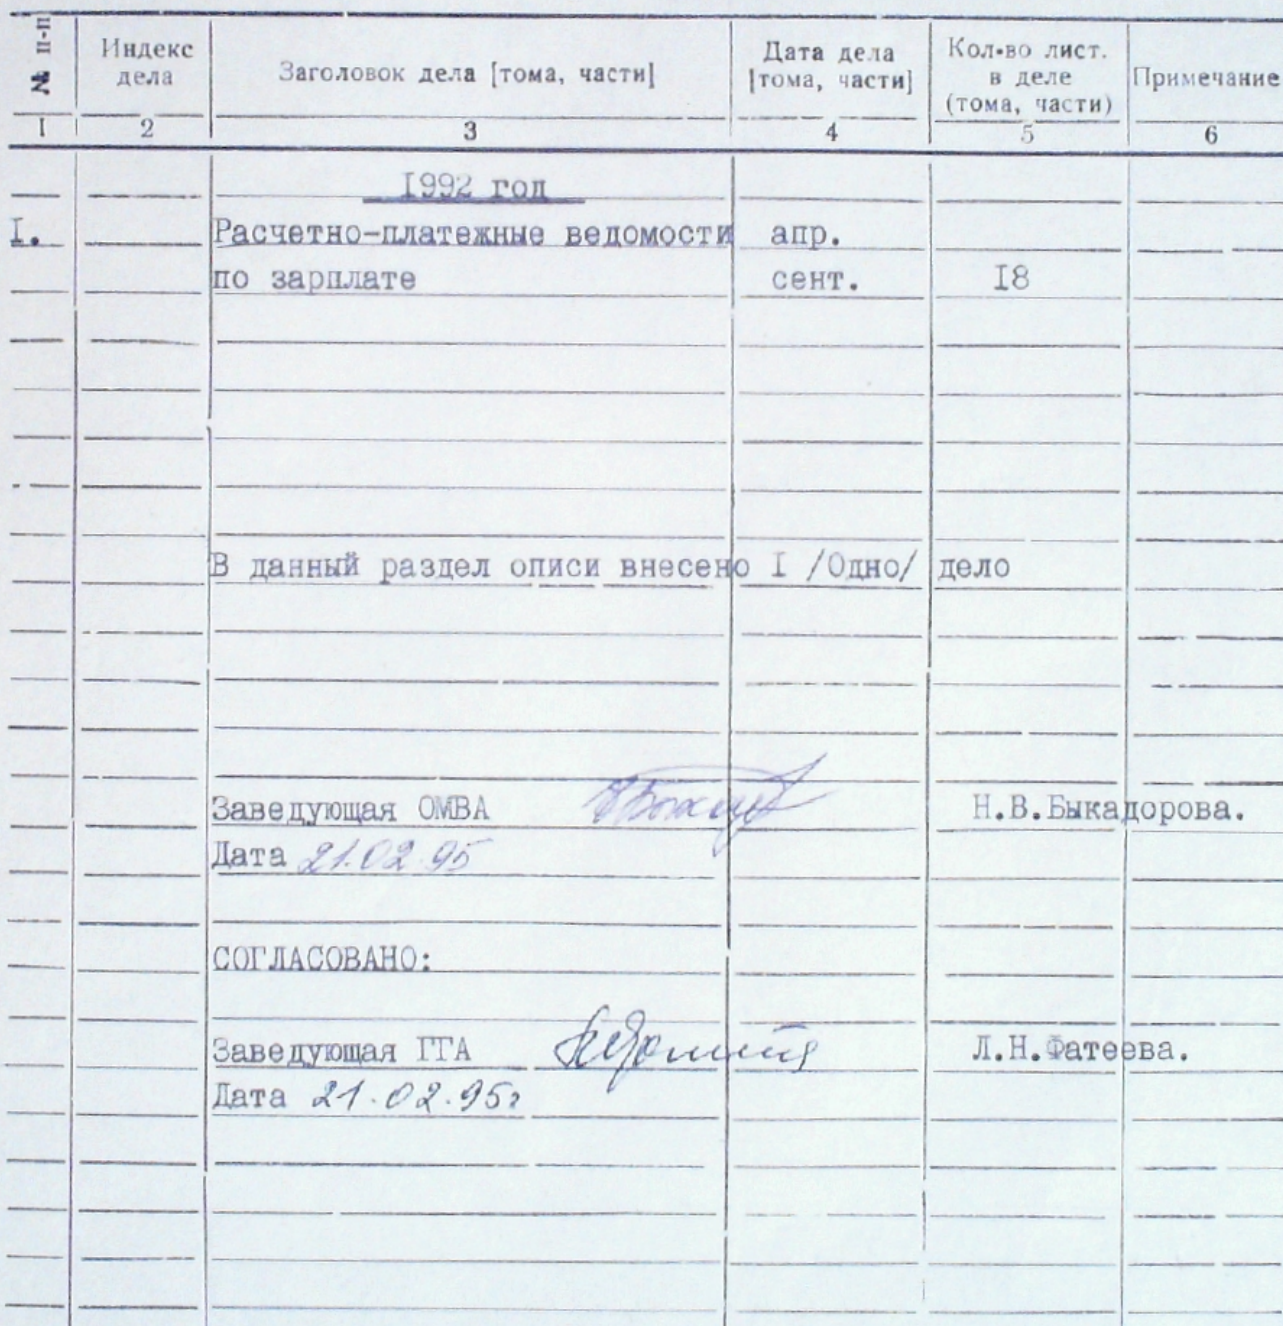 № п-п Индекс дела Заголовок дела [тома, части] Дата дела [тома, части] Кол-во лист. в деле (тома, части) Примечание
I 2 3 4 5 6
I992 год
I. Расчетно-платежные ведомости апр.
по зарплате сент. I8
В данный раздел описи внесено I /Одно/ дело
Заведующая ОМВА Н.В.Быкадорова.
Дата 21.02.95
СОГЛАСОВАНО:
Заведующая ГГА Л.Н.Фатеева.
Дата 21.02.95г